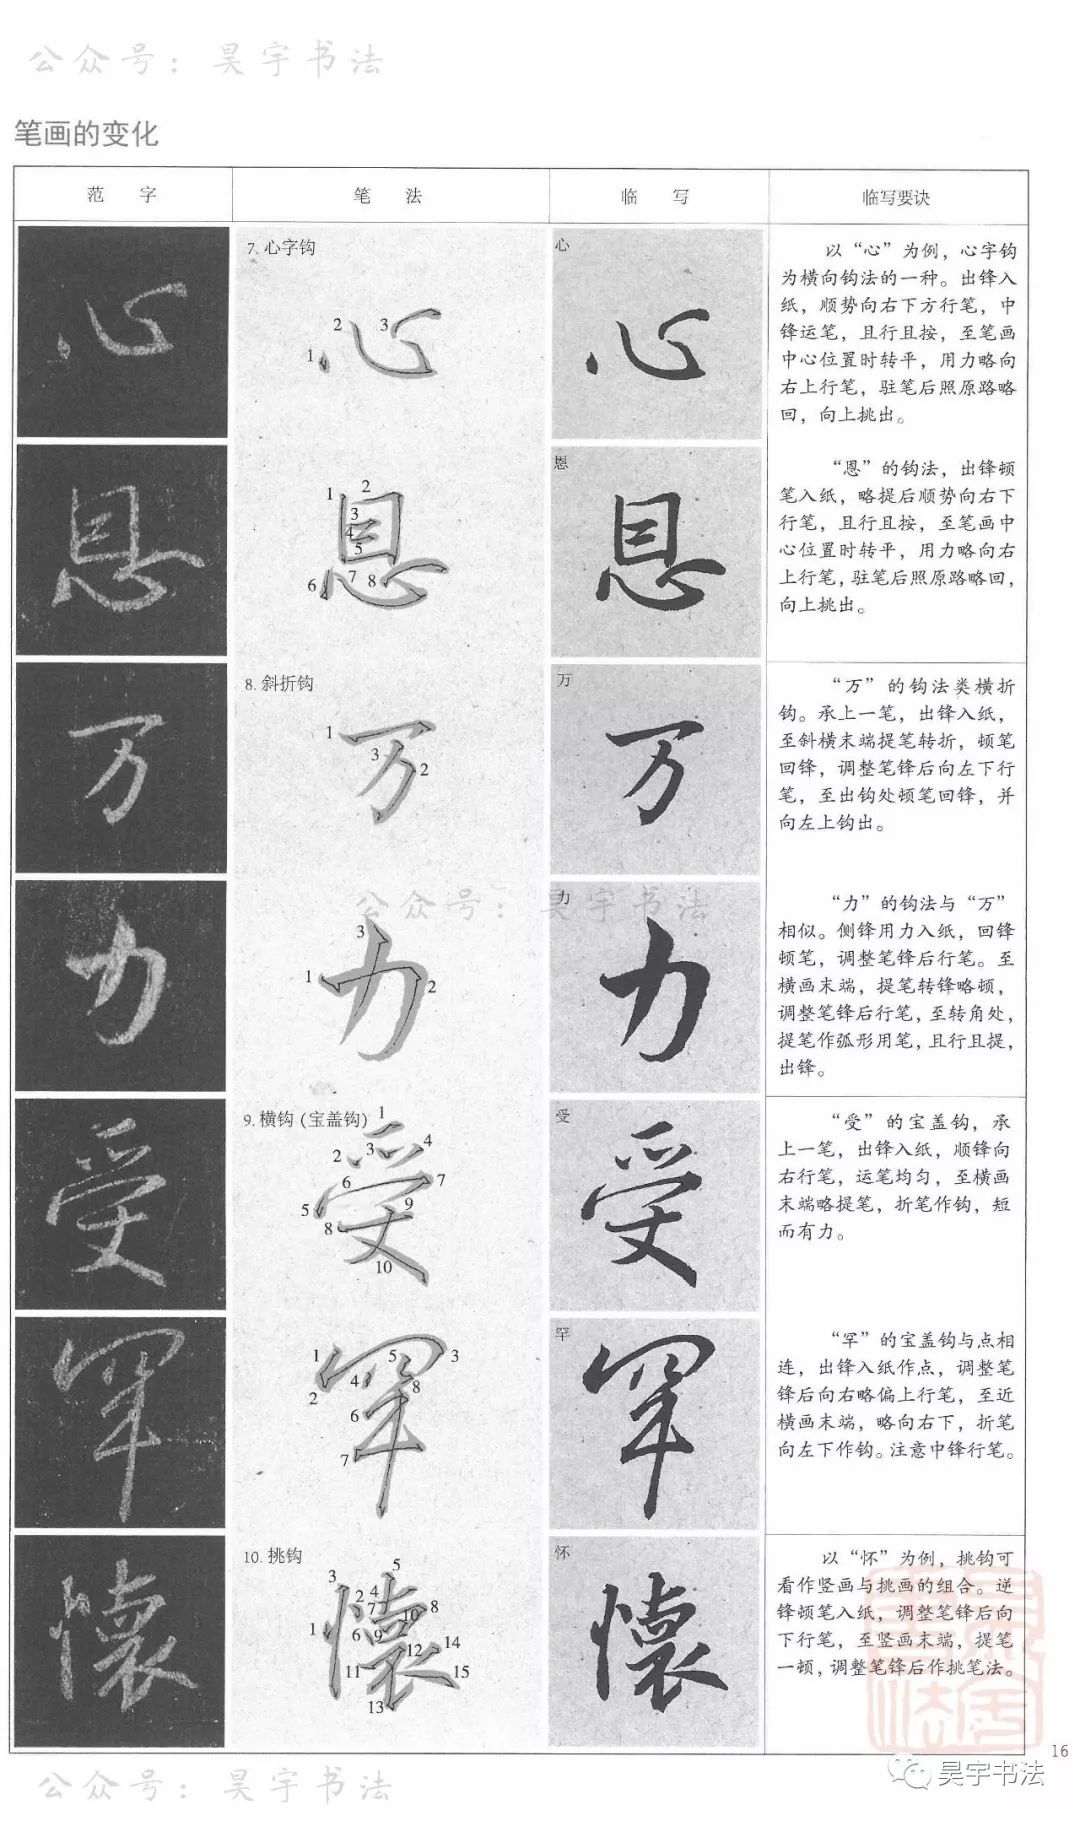 公众号：昊宇书法
笔画的变化
范 字
笔 法
临 写
临写要诀
7. 心字钩
1
2
3
心
以“心”为例，心字钩
为横向钩法的一种。出锋入
纸，顺势向右下方行笔，中
锋运笔，且行且按，至笔画
中心位置时转平，用力略向
右上行笔，驻笔后照原路略
回，向上挑出。
1
2
3
4
5
6
7
8
恩
“恩”的钩法，出锋顿
笔入纸，略提后顺势向右下
行笔，且行且按，至笔画中
心位置时转平，用力略向右
上行笔，驻笔后照原路略回，
向上挑出。
8. 斜折钩
1
3
2
万
“万”的钩法类横折
钩。承上一笔，出锋入纸，
至斜横末端提笔转折，顿笔
回锋，调整笔锋后向左下行
笔，至出钩处顿笔回锋，并
向左上钩出。
公众号：昊宇书法
3
1
2
力
“力”的钩法与“万”
相似。侧锋用力入纸，回锋
顿笔，调整笔锋后行笔。至
横画末端，提笔转锋略顿，
调整笔锋后行笔，至转角处，
提笔作弧形用笔，且行且提，
出锋。
9. 横钩（宝盖钩）
1
2
3
4
5
6
7
8
9
10
受
“受”的宝盖钩，承
上一笔，出锋入纸，顺锋向
右行笔，运笔均匀，至横画
末端略提笔，折笔作钩，短
而有力。
1
2
3
4
5
6
7
8
罕
“罕”的宝盖钩与点相
连，出锋入纸作点，调整笔
锋后向右略偏上行笔，至近
横画末端，略向右下，折笔
向左下作钩。注意中锋行笔。
10. 挑钩
1
2
3
4
5
6
7
8
9
10
11
12
13
14
15
怀
以“怀”为例，挑钩可
看作竖画与挑画的组合。逆
锋顿笔入纸，调整笔锋后向
下行笔，至竖画末端，提笔
一顿，调整笔锋后作挑笔法。
16
昊宇书法
公众号：昊宇书法